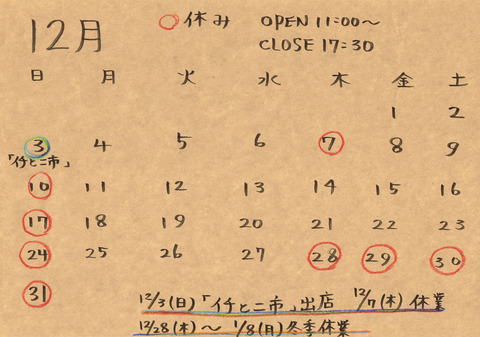 12月
○休み OPEN 11:00～
CLOSE 17:30
日 月 火 水 木 金 土
1 2
3 4 5 6 7 8 9
「イチとニ市」
10 11 12 13 14 15 16
17 18 19 20 21 22 23
24 25 26 27 28 29 30
31
12/3(日)「イチとニ市」出店 12/7(木)休業
12/28(木)～1/8(月)冬季休業